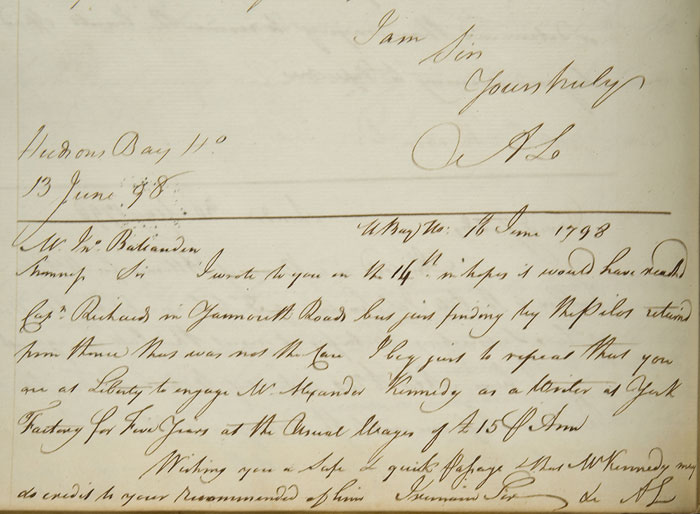 I am
Sir
Yours truly
& AL
Hudsons Bay Ho
13 June 98
HBay Ho. 16 June 1798
Mr Jno Ballanden
Stromness Sir I wrote to you on the 14th in hopes it would have reached
Capn Richards in Yarmouth Roads but just finding by the Pilot returnd
from thence that was not the Case I beg just to repeat that you
are at Liberty to engage Mr Alexander Kennedy as a Writer at York
Factory for Five Years at the Usual Wages of £15 P Ann
Wishing you a Safe & quick Passage & that Mr Kennedy may
do credit to your recommended of him I remain Sir &c AL